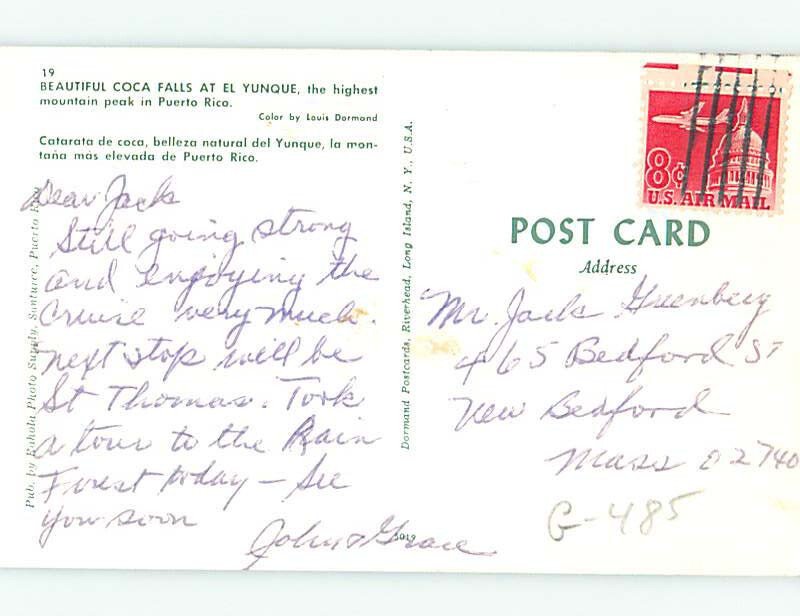 19
BEAUTIFUL COCA FALLS AT EL YUNQUE, the highest
mountain peak in Puerto Rico.
Color by Louis Dormand
Catarata de coca, belleza natural del Yunque, la mon-
taña más elevada de Puerto Rico.
Dear Jack
Still going strong
and enjoying the
Cruise very much.
next stop will be
St Thomas. Took
a tour to the Rain
Forest today - See
you soon
John & Grace
Pub. by Rahola Photo Supply, Santurce, Puerto
5019
Dormand Postcards, Riverhead, Long Island, N. Y., U.S.A.
8¢
U.S. AIR MAIL
POST CARD
Address
Mr. Jack
465 Bedford St
New Bedford
Mass 02740
G-485